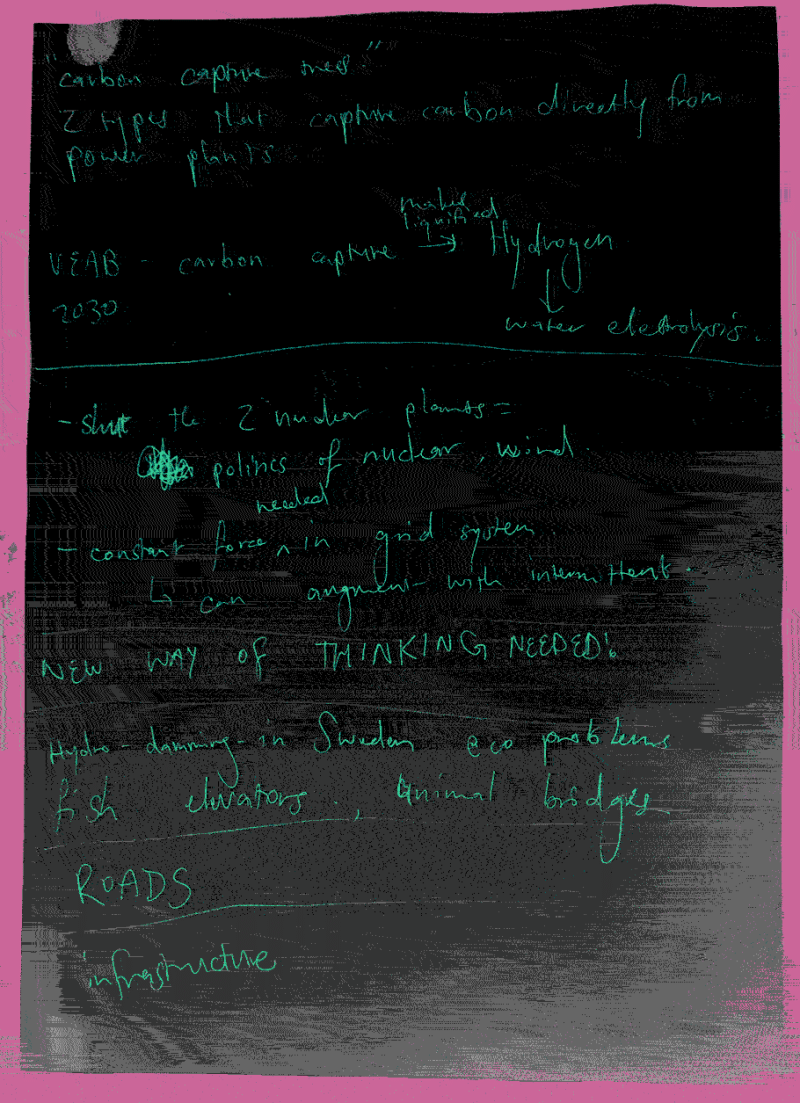 "carbon capture trees"
2 types that capture carbon directly from
power plants
makes
liquified
VEAB - carbon capture → Hydrogen
↓
2030
water electrolysis.
- shut the 2 nuclear plants =
politics of nuclear, wind.
needed
- constant force ^ in grid system.
↳ can augment with intermittent.
NEW WAY OF THINKING NEEDED!
Hydro-damming-in Sweden eco problems
fish elevators, animal bridges
ROADS
infrastructure